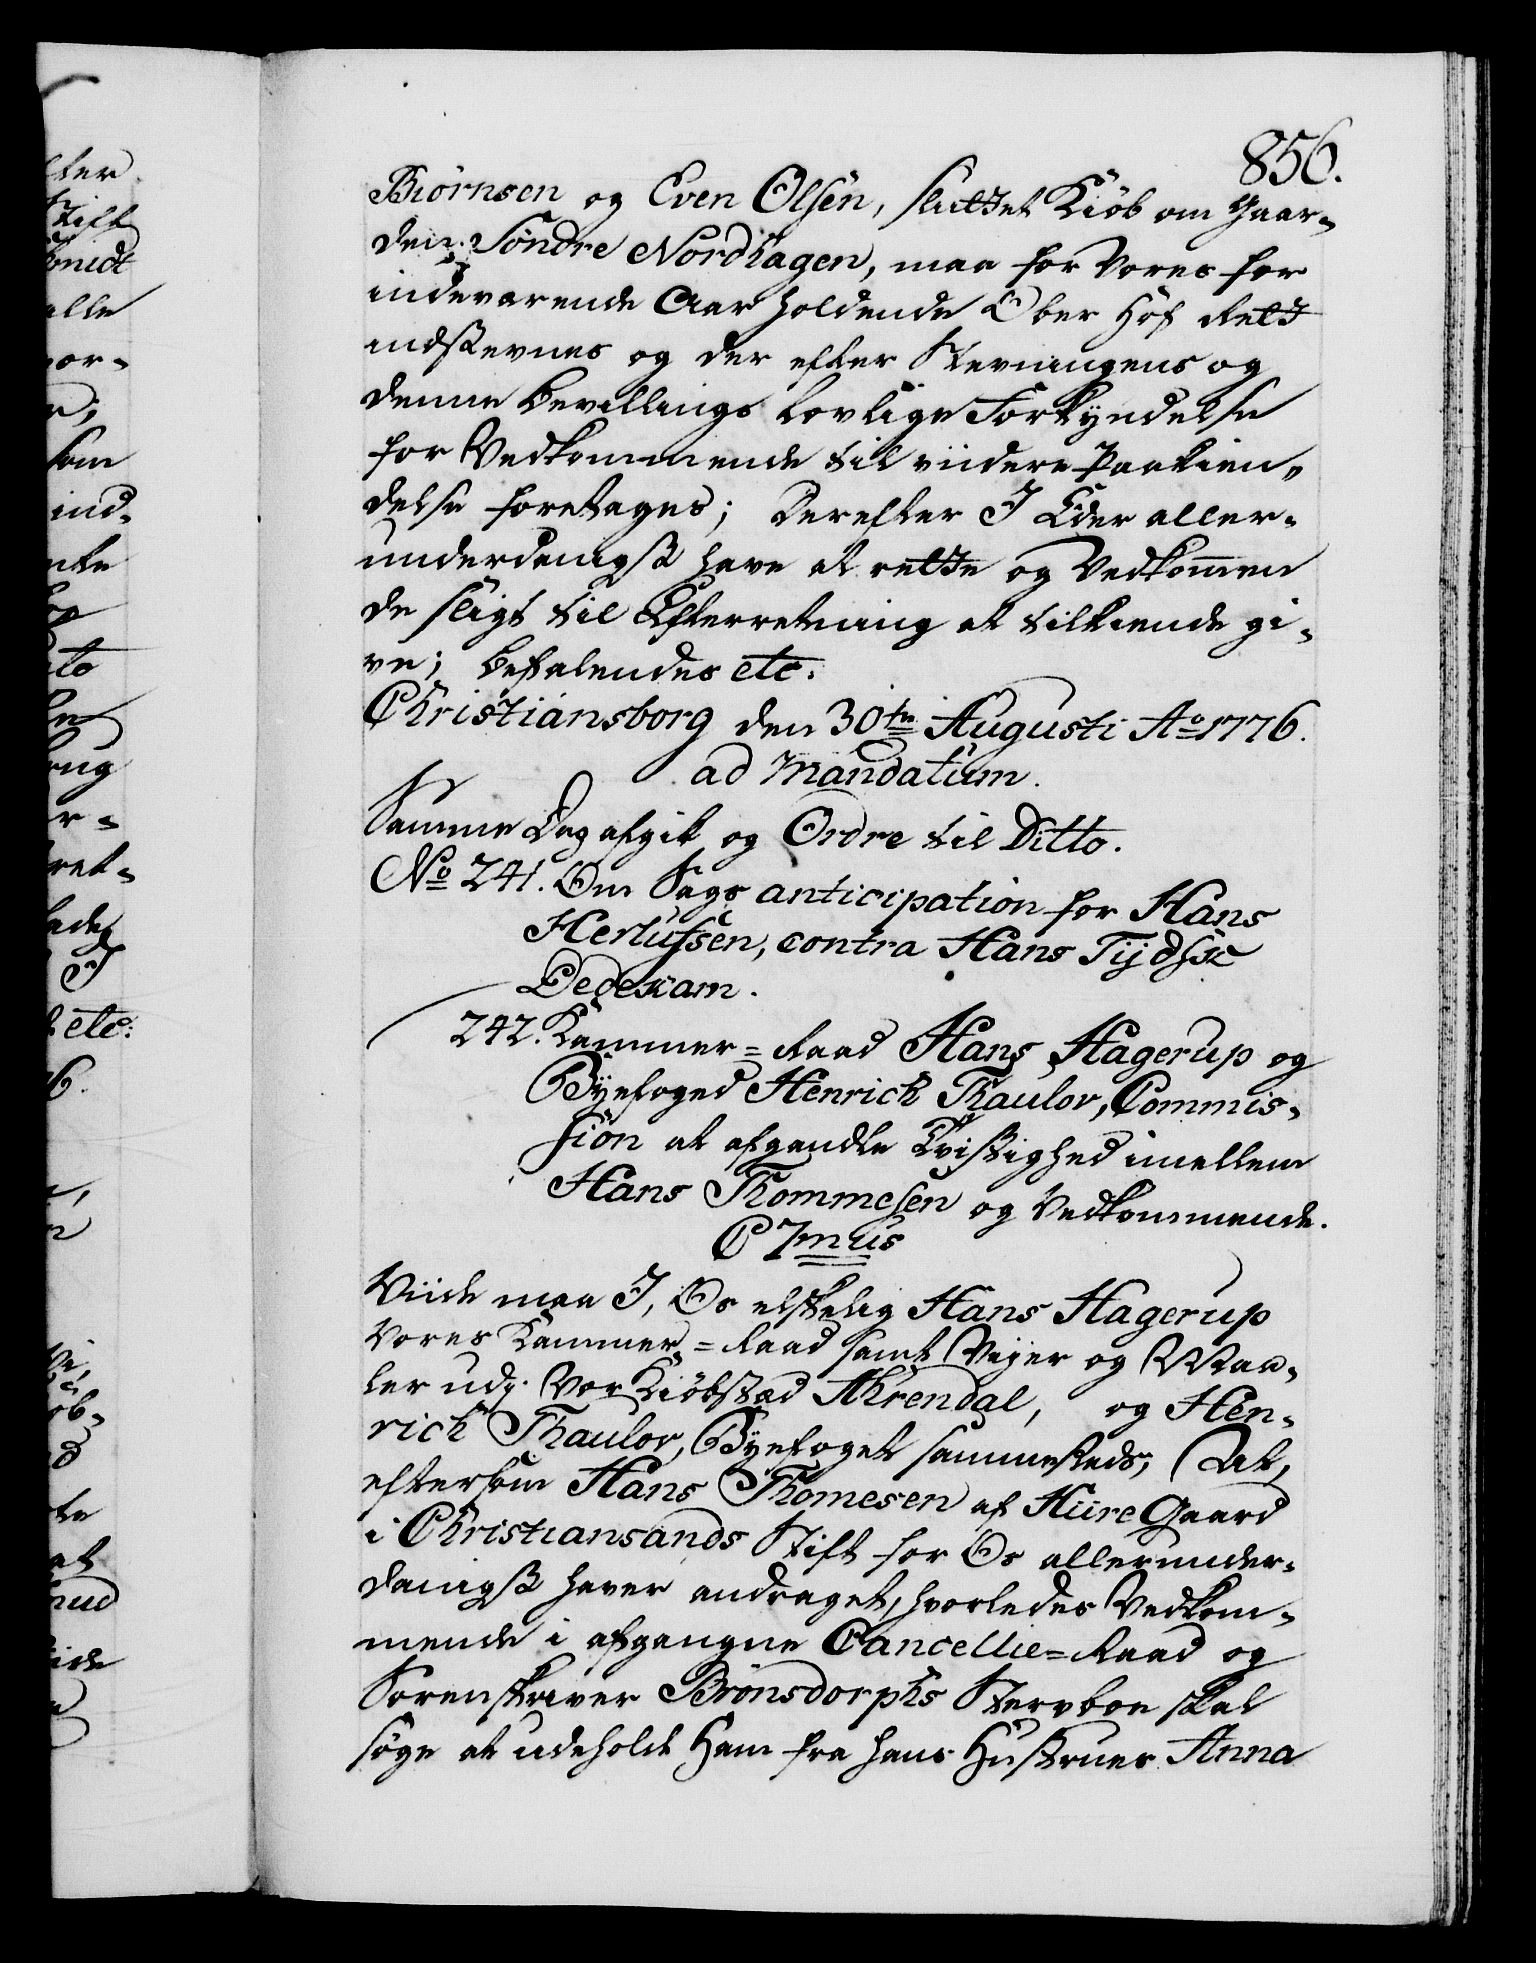 856.
Biørnsen og Even Olsen, sluttet Kiöb om Gaar-
den Søndre Nordhagen, maa for Vores for
indeværende Aar holdende Ober Hof Rett
indstevnes og der efter Stevningens og
denne Bevillings lovlige Forkyndelse
for Vedkommende til viidere Paakien-
delse foretages; Derefter I Eder aller-
underdanigst have at rette og Vedkommen
de sligt til Efterretning at tilkiende gi-
ve; Befalendes etc:
Christiansborg den 30te Augusti Ao 1776.
ad Mandatum.
Samme Dag afgik og Ordre til Ditto.
No 241. Om Sags anticipation for Hans
Herlufsen, contra Hans Tydsk
Dedekam.
242. Kammer-Raad Hans Hagerup og
Byefoged Henrich Thaulov, Commis-
sion at afhandle Tvistighed imellem
Hans Thommesen og Vedkommende.
C 7mus
Viide maa I, Os elskelig Hans Hagerup
Vores Kammer-Raad samt Vejer og Maa-
ler udj Vor Kiöbstæd Ahrendal, og Hen-
rich Thaulov, Byefoget sammesteds, At,
eftersom Hans Thomesen af Hiire Gaard
i Christiansands Stift for Os allerunder-
danigst haver andraget, hvorledes Vedkom-
mende i afgangne Cancellie-Raad og
Sorenskriver Brønsdorphs Stervboe skal
søge at udeholde Ham fra hans Hustrues Anna